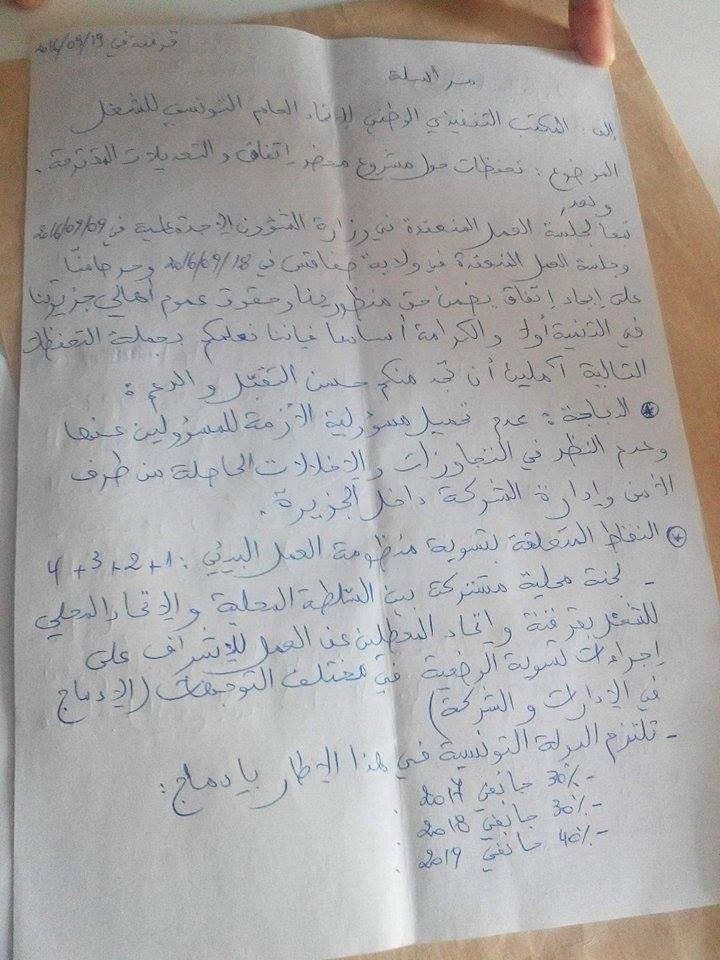 قرقنة في 2016/09/19
مراسلة
إلى: المكتب التنفيذي الوطني للاتحاد العام التونسي للشغل
الموضوع: تحفظات حول مشروع محضر إتفاق والتعديلات المقترحة.
وبعد,
تبعا لجلسة العمل المنعقدة في وزارة الشؤون الإجتماعية في 2016/09/09
وجلسة العمل المنعقدة في ولاية صفاقس في 2016/09/18 وحرصا منّا
على إيجاد إتفاق يضمن حق منظورينا وحقوق عموم أهالي جزيرتنا
في التنمية أولا والكرامة أساسا فإننا نعلمكم بجملة التحفظات
التالية آملين أن تجد منكم حسن التقبّل والدعم:
* الديباجة: عدم تحميل مسؤولية الأزمة للمسؤولين عنها
وعدم النظر في التجاوزات والإخلالات الحاصلة من طرف
الأمن وإدارة الشركة داخل الجزيرة.
* النقاط المتعلقة بتسوية منظومة العمل البيئي: 1+2+3+4
- لجنة محلية مشتركة بين السلطة المحلية والإتحاد المحلي
للشغل بقرقنة واتحاد المعطلين عن العمل للإشراف على
إجراءات تسوية الوضعية في مختلف التوجهات (الإدماج
في الإدارات والشركة)
- تلتزم الدولة التونسية في هذا الإطار بإدماج:
-30% جانفي 2017
-30% جانفي 2018
-40% جانفي 2019